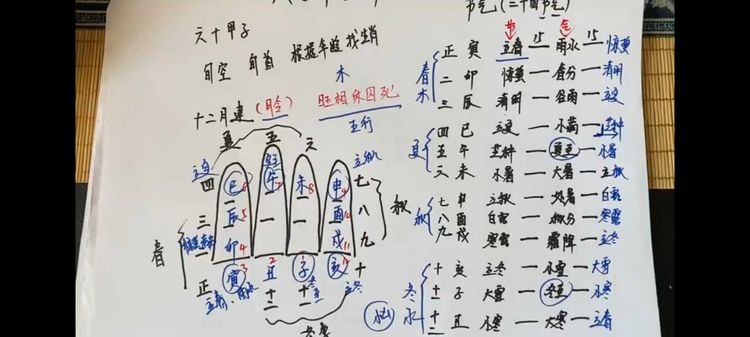 节气(二十四节气)
六十甲子
旬空 旬首 根据年验找生肖
木
十二月建(月令) 旺相休囚死
五行
夏 五 六
立夏 四 巳6 午7 未8 申9 七 立秋
三 辰5 一 一 酉10 八 秋
春 二 卯4 一 一 戌11 九
正 寅3 丑2 子1 亥12 十 立冬
立春、雨水 十二 十一 冬至
冬季
节 气
春 木
正 寅 立春 — 雨水 — 惊蛰
二 卯 惊蛰 — 春分 — 清明
三 辰 清明 — 谷雨 — 立夏
夏
四 巳 立夏 — 小满 — 芒种
五 午 芒种 — 夏至 — 小暑
六 未 小暑 — 大暑 — 立秋
秋
七 申 立秋 — 处暑 — 白露
八 酉 白露 — 秋分 — 寒露
九 戌 寒露 — 霜降 — 立冬
冬 水
十 亥 立冬 — 小雪 — 大雪
十一 子 大雪 — 冬至 — 小寒
十二 丑 小寒 — 大寒 — 立春